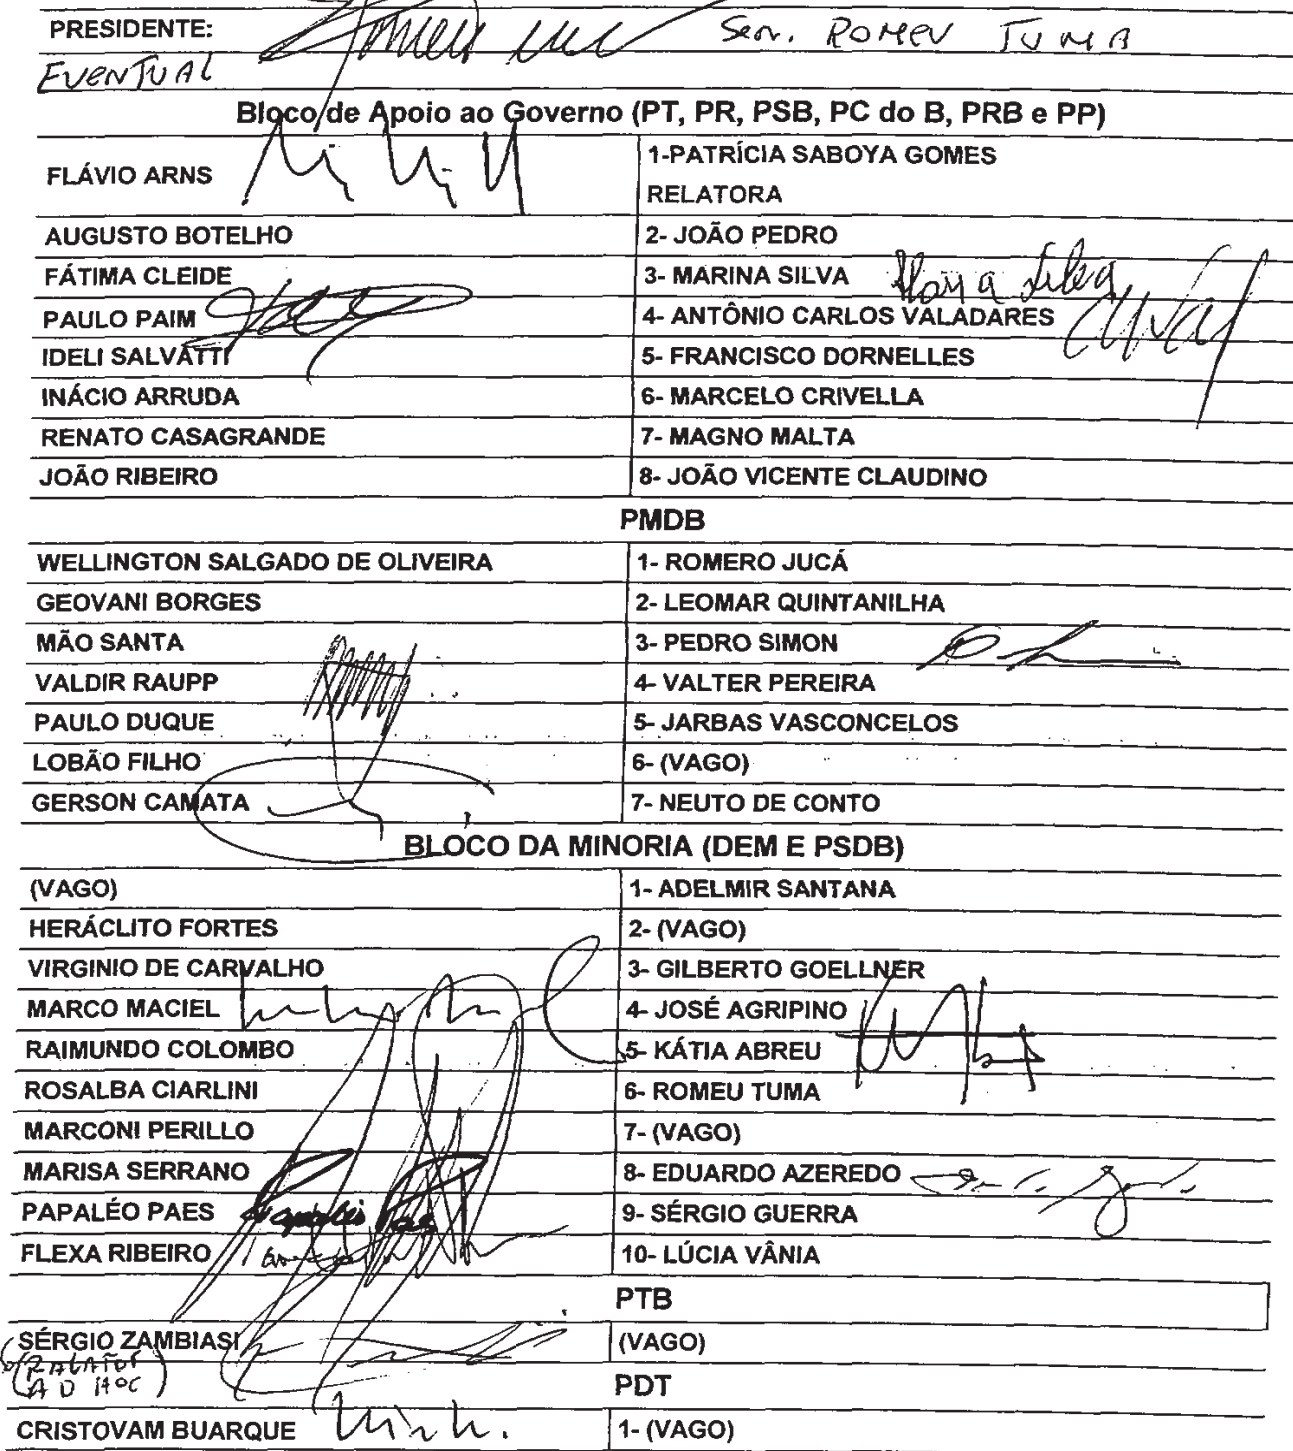 PRESIDENTE: Sen. ROMEU TUMA
EVENTUAL
Bloco de Apoio ao Governo (PT, PR, PSB, PC do B, PRB e PP)
FLÁVIO ARNS
1-PATRÍCIA SABOYA GOMES
RELATORA
AUGUSTO BOTELHO
2- JOÃO PEDRO
FÁTIMA CLEIDE
3- MARINA SILVA Marina Silva
PAULO PAIM
4- ANTÔNIO CARLOS VALADARES
IDELI SALVATTI
5- FRANCISCO DORNELLES
INÁCIO ARRUDA
6- MARCELO CRIVELLA
RENATO CASAGRANDE
7- MAGNO MALTA
JOÃO RIBEIRO
8- JOÃO VICENTE CLAUDINO
PMDB
WELLINGTON SALGADO DE OLIVEIRA
1- ROMERO JUCÁ
GEOVANI BORGES
2- LEOMAR QUINTANILHA
MÃO SANTA
3- PEDRO SIMON
VALDIR RAUPP
4- VALTER PEREIRA
PAULO DUQUE
5- JARBAS VASCONCELOS
LOBÃO FILHO
6- (VAGO)
GERSON CAMATA
7- NEUTO DE CONTO
BLOCO DA MINORIA (DEM E PSDB)
(VAGO)
1- ADELMIR SANTANA
HERÁCLITO FORTES
2- (VAGO)
VIRGINIO DE CARVALHO
3- GILBERTO GOELLNER
MARCO MACIEL
4- JOSÉ AGRIPINO
RAIMUNDO COLOMBO
5- KÁTIA ABREU
ROSALBA CIARLINI
6- ROMEU TUMA
MARCONI PERILLO
7- (VAGO)
MARISA SERRANO
8- EDUARDO AZEREDO
PAPALÉO PAES Papaléo Paes
9- SÉRGIO GUERRA
FLEXA RIBEIRO
10- LÚCIA VÂNIA
PTB
SÉRGIO ZAMBIASI
(VAGO)
(RELATOR
AD HOC)
PDT
CRISTOVAM BUARQUE
1- (VAGO)